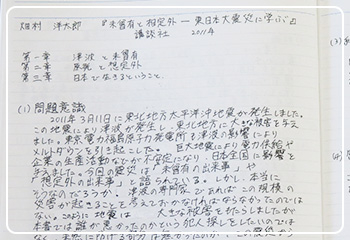 畑村 洋太郎 『未曾有と想定外 ― 東日本大震災に学ぶ』
講談社 2011年
第一章 津波と未曾有
第二章 原発と想定外
第三章 日本で生きるということ
(1) 問題意識
2011年3月11日に東北地方太平洋沖地震が発生しました。
この地震により津波が発生し、東北地方に大きな被害を与え
ました。東京電力福島原子力発電所も津波の影響により
メルトダウンを引き起こした。巨大地震により電力供給や
企業の生産活動などが不安定になり、日本全国に影響を
与えました。今回の震災は「未曾有の出来事」や
「想定外の出来事」と語られている。しかし、本当に
そうなのだろうか。津波の専門家であればこの規模の
災害が起きることを考えておかなければならなかったのでは
ない。 地震は 大きな被害をもたらしましたが
本書では誰が悪かったのかという犯人探しをしたいのでは
なく、未然に防げる